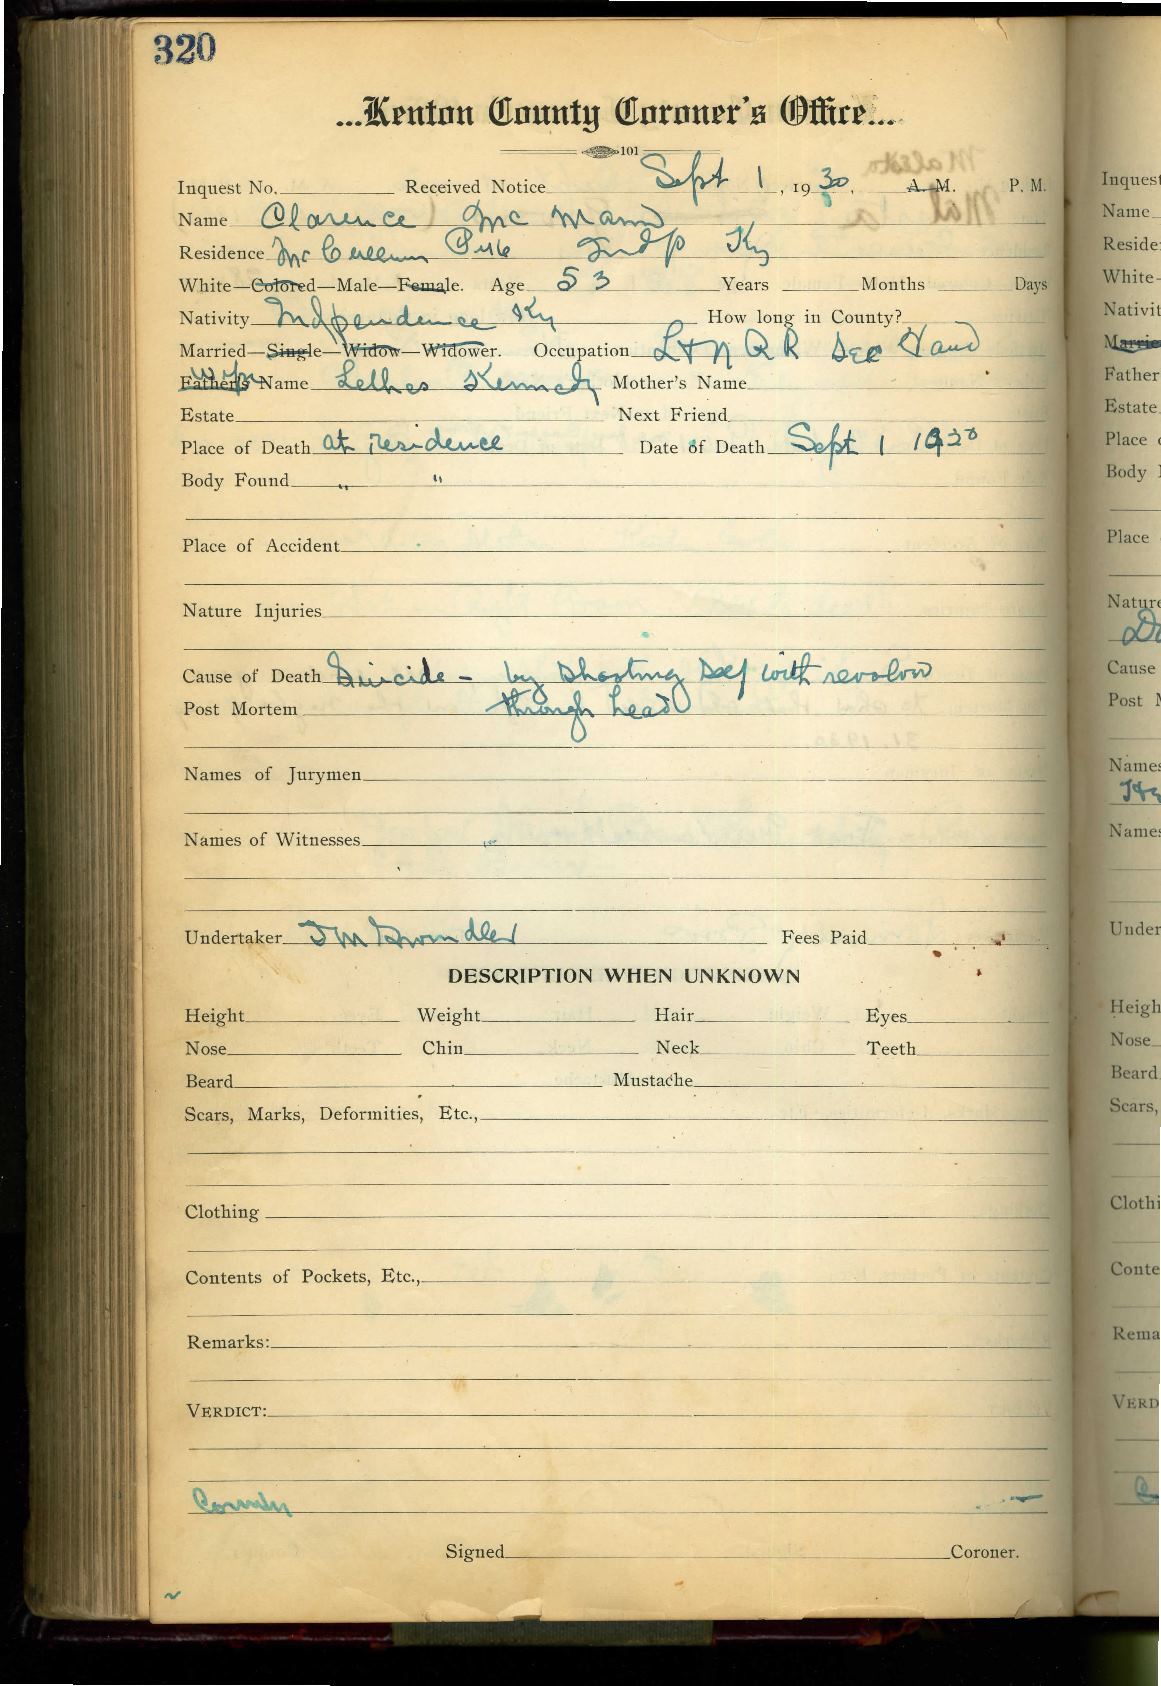 320
...Kenton County Coroner's Office...
101
Inquest No. Received Notice Sept 1, 1930, A. M. P. M.
Name Clarence Mc Mann
Residence Mc Cullum Pike Indp Ky
White—Colored—Male—Female. Age 53 Years Months Days
Nativity Independence Ky How long in County?
Married—Single—Widow—Widower. Occupation L & N R R Sec Hand
Wife
Father's Name Kennedy Mother's Name
Estate Next Friend
Place of Death at residence Date of Death Sept 1 1930
Body Found " "
Place of Accident
Nature Injuries
Cause of Death Suicide - by shooting self with revolver
Post Mortem through head
Names of Jurymen
Names of Witnesses
Undertaker Fees Paid
DESCRIPTION WHEN UNKNOWN
Height Weight Hair Eyes
Nose Chin Neck Teeth
Beard Mustache
Scars, Marks, Deformities, Etc.,
Clothing
Contents of Pockets, Etc.,
Remarks:
VERDICT:
County
Signed Coroner.
Inquest
Name
Reside
White-
Nativit
Marrie
Father
Estate
Place
Body
Place
Nature
Cause
Post M
Names
Names
Under
Heigh
Nose
Beard
Scars,
Clothi
Conte
Rema
VERD